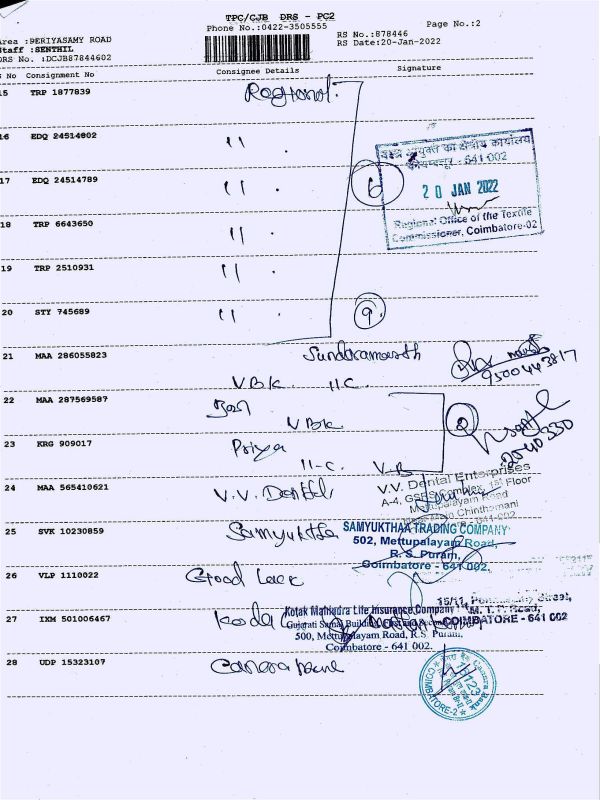 TPC/CJB DRS - PC2
Phone No.:0422-3505555
Page No.:2
RS No.:878446
RS Date:20-Jan-2022
Area :PERIYASAMY ROAD
Staff :SENTHIL
DRS No. :DCJB87844602
S No Consignment No Consignee Details Signature
15 TRP 1877839 Regional.
16 EDQ 24514802 " .
17 EDQ 24514789 " .
18 TRP 6643650 " .
19 TRP 2510931 " .
20 STY 745689 " .
6
9.
वस्त्र आयुक्त का क्षेत्रीय कार्यालय
कोयम्बत्तूर - 641 002
20 JAN 2022
Regional Office of the Textile
Commissioner, Coimbatore-02
21 MAA 286055823
VBK. 11C.
9500443817
22 MAA 287569587
VBK
2
23 KRG 909017 Priya
11-C. V.B
2540330
24 MAA 565410621 V.V. Dental
V.V. Dental Enterprises
Mettupalayam Road
25 SVK 10230859 Samyuktha
SAMYUKTHAA TRADING COMPANY
502, Mettupalayam Road,
R.S. Puram,
Coimbatore - 641 002.
26 VLP 1110022 Good Luck
15/11,
M.T.P. Road,
COIMBATORE - 641 002
27 IXM 501006467
Kotak Mahindra Life Insurance Company
500, Mettupalayam Road, R.S. Puram,
Coimbatore - 641 002.
28 UDP 15323107 Canara bank
Canara Bank
COIMBATORE-2